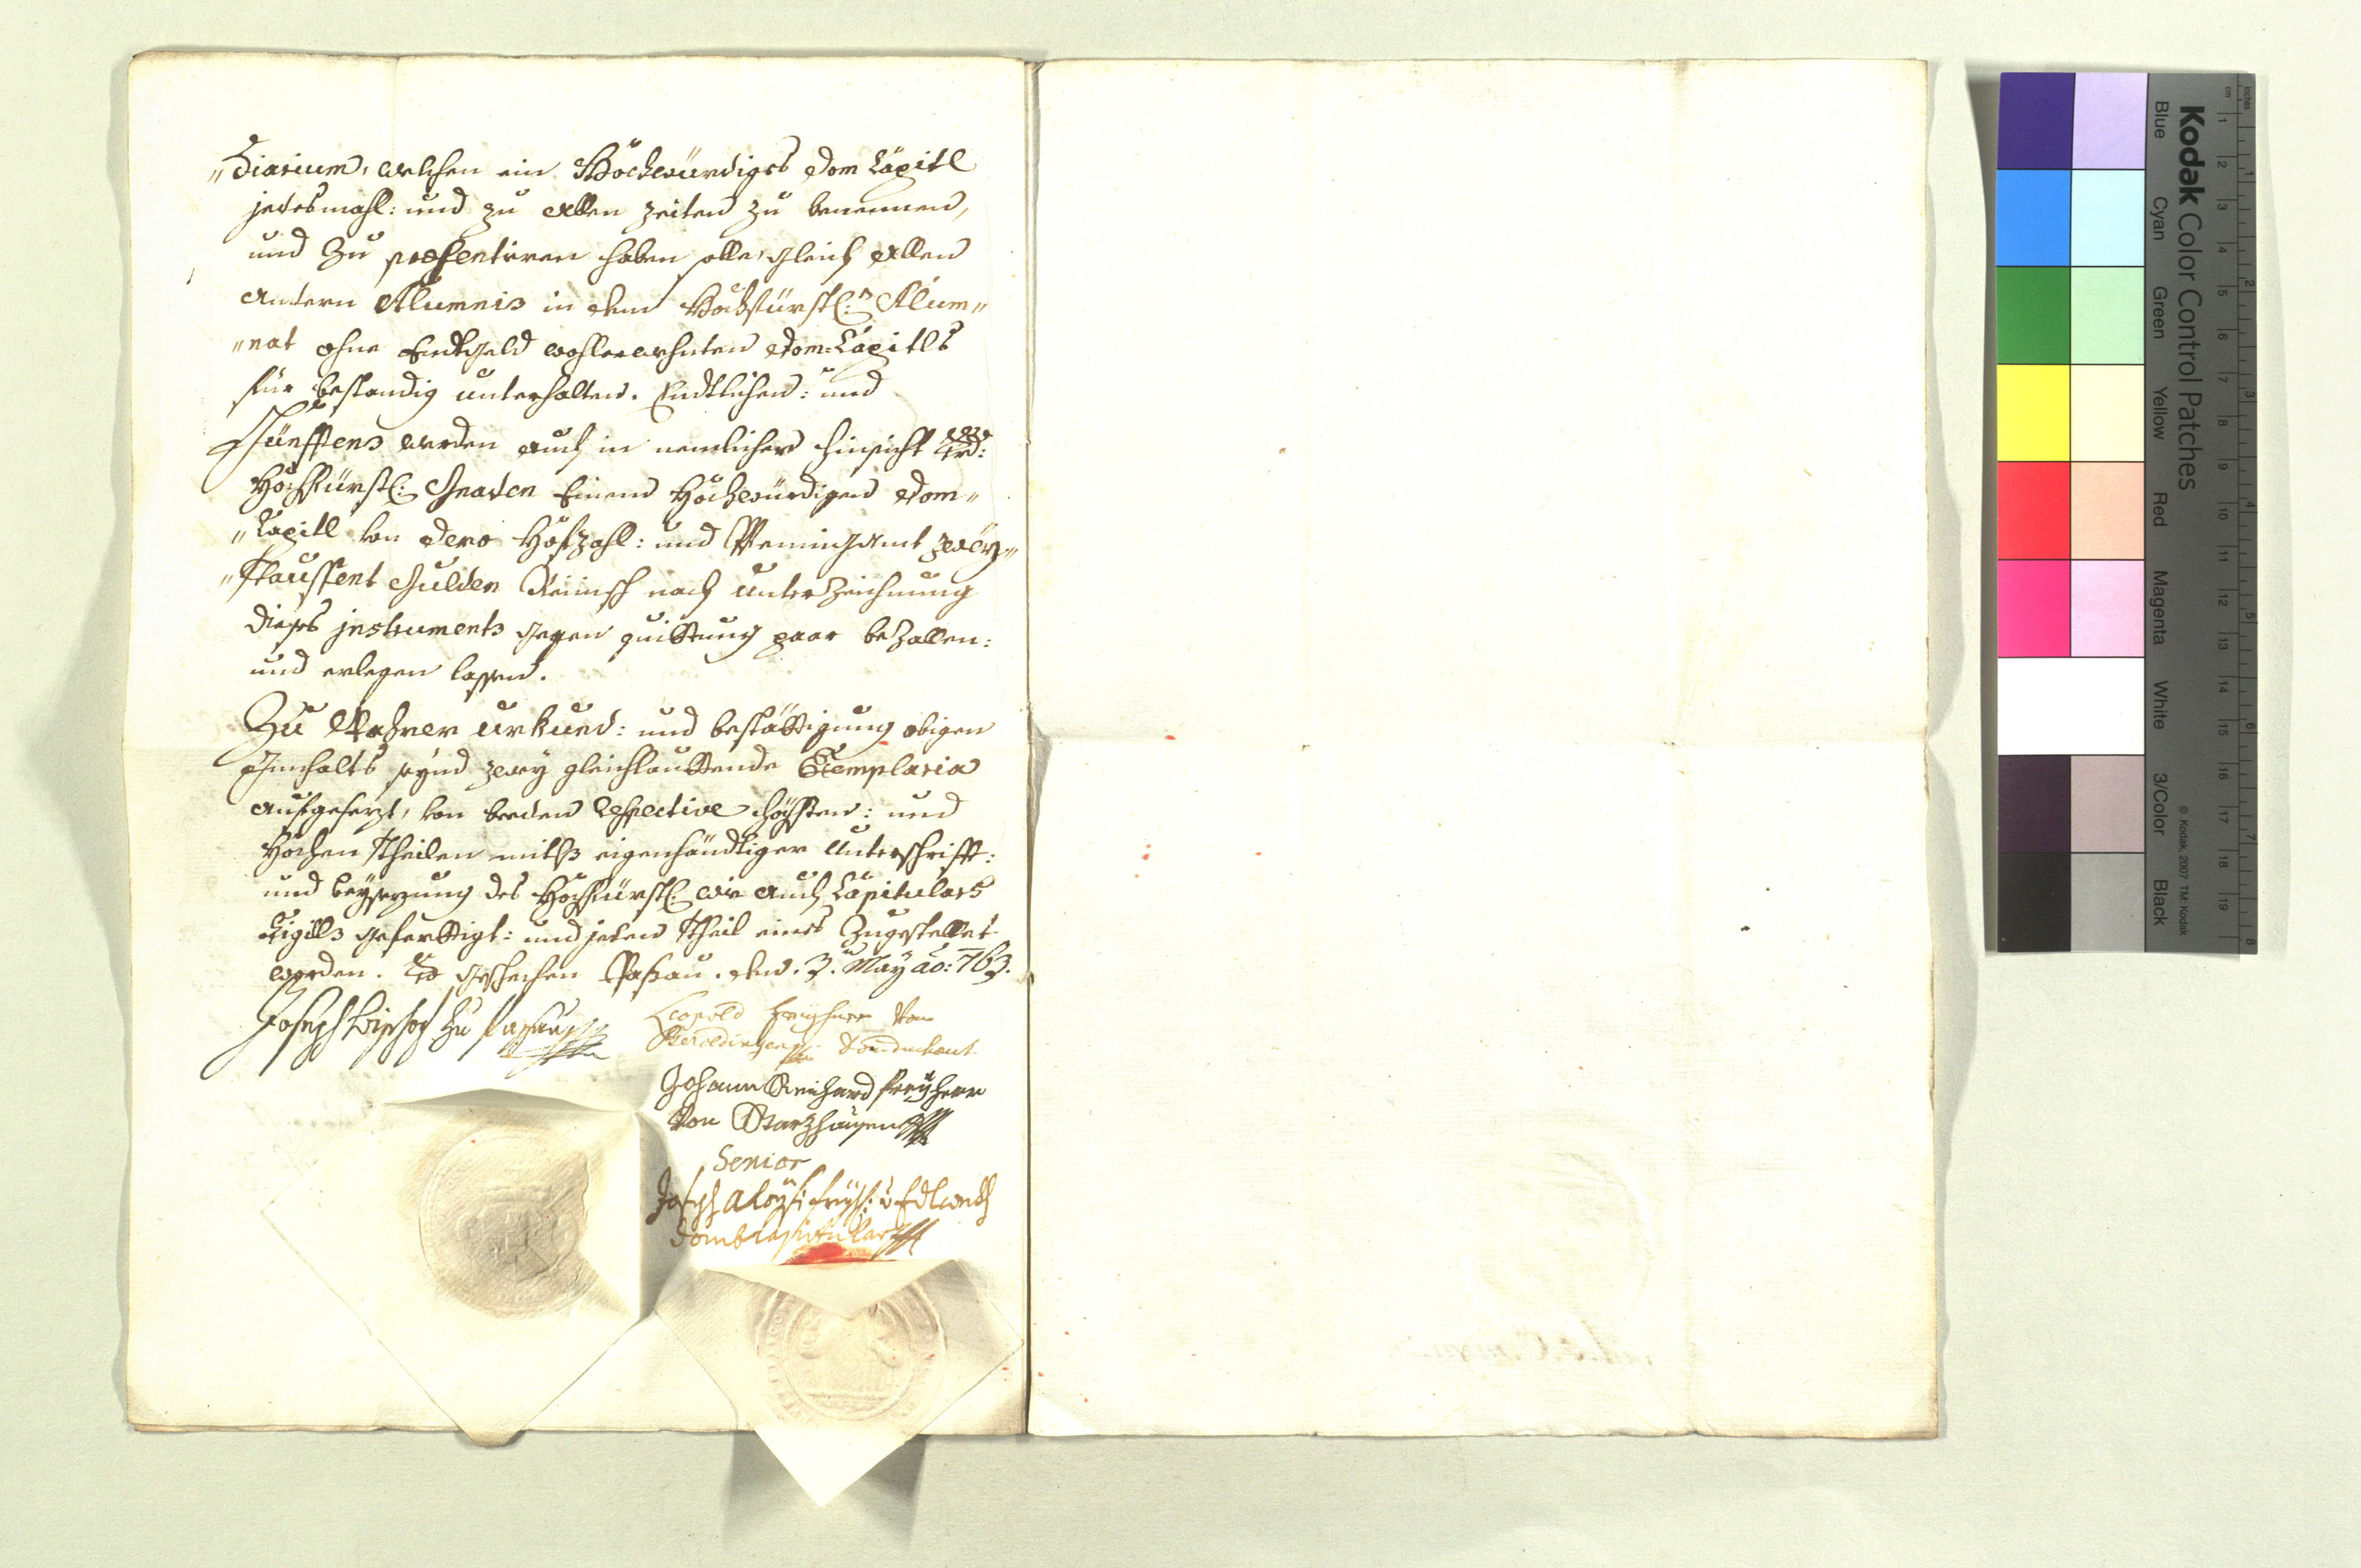 „diarium, welchen ein Hochwürdiges Dom Capitl
jedesmahl: und zu allen zeiten zu benennen,
und zu præsentiren haben solle, gleich allen
andern Alumnis in dem Hochfürstl:n Alum„
„nat ohne Entgeld wohlerwehnten Dom-Capitls
für bestandig unterhalten. Endtlichen: und
Fünfftens werden auch in nemlicher hinsicht
Hochfürstl: Gnaden Einem Hochwürdigen Dom„
„Capitl von dero Hofzahl: und Pfeningamt zwey„
„Taussent Gulden Reinisch nach unterzeichnung
dieses instruments gegen quittung paar bezallen:
und erlegen lassen.
Zu Wahrer urkund: und bestättigung obigen
Innhalts seynd zwey gleichlauttende Exemplaria
aufgesezt, von beeden Respective höchsten: und
Hochen Theilen mitls eigenhändtiger Unterschrifft:
und beysezung des Hochfürstl: wie auch Capitulars
Sigills geferttigt: und jeden Theil eines Zugestellet
worden. So geschehen Passau. den. 3. May ao: 763.
Joseph Bischof zu Passau
Leopold freyherr von
Beroldingen Domdechant
Johann Reichard freyherr
Von Starzhausen
Senior
Joseph Aloysi freyh: v Edlweckh
Dombcapitular
Kodak Color Control Patches
Blue Cyan Green Yellow Red Magenta White 3/Color Black
© Kodak, 2007 TM: Kodak
inches 1 2 3 4 5 6 7 8
cm 1 2 3 4 5 6 7 8 9 10 11 12 13 14 15 16 17 18 19